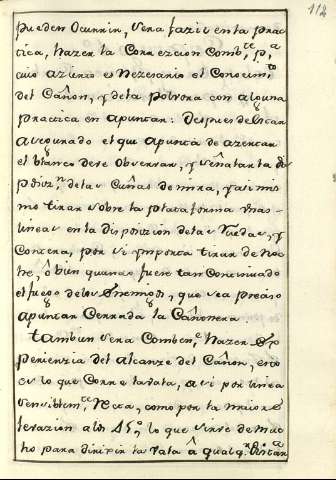 112
pueden Ocurrir, sera facil en la prac
tica, hazer la Correzcion Comb.te p.a
cuio azierto es Nezesario el Conocim.to
del Cañon, y dela polvora con alguna
practica en apuntar: Despues de estar
asegurado el qui apunta de azertar
el blanco deve observar, y señalar la dis
posiz.n delas Cuñas de mira, y asimis
mo tirar sobre la plataforma unas
lineas en la disposizion delas Ruedas, y
Contera, por si ymporta tirar de noc
he, ô bien quando fuere tan Continuado
el fuego delos Enemigos, que sea preciso
apuntar Cerrada la Cañonera.
Tambien sera Combem.te hazer Ex
perienzia del alcanze del Cañon, esto
es lo que Corre la vala, asi por linea
sensiblem.te Recta, como por la maior e
levazion alos 45.°, lo que sirve de mu
cho para dirixir la vala â qualq.r distan